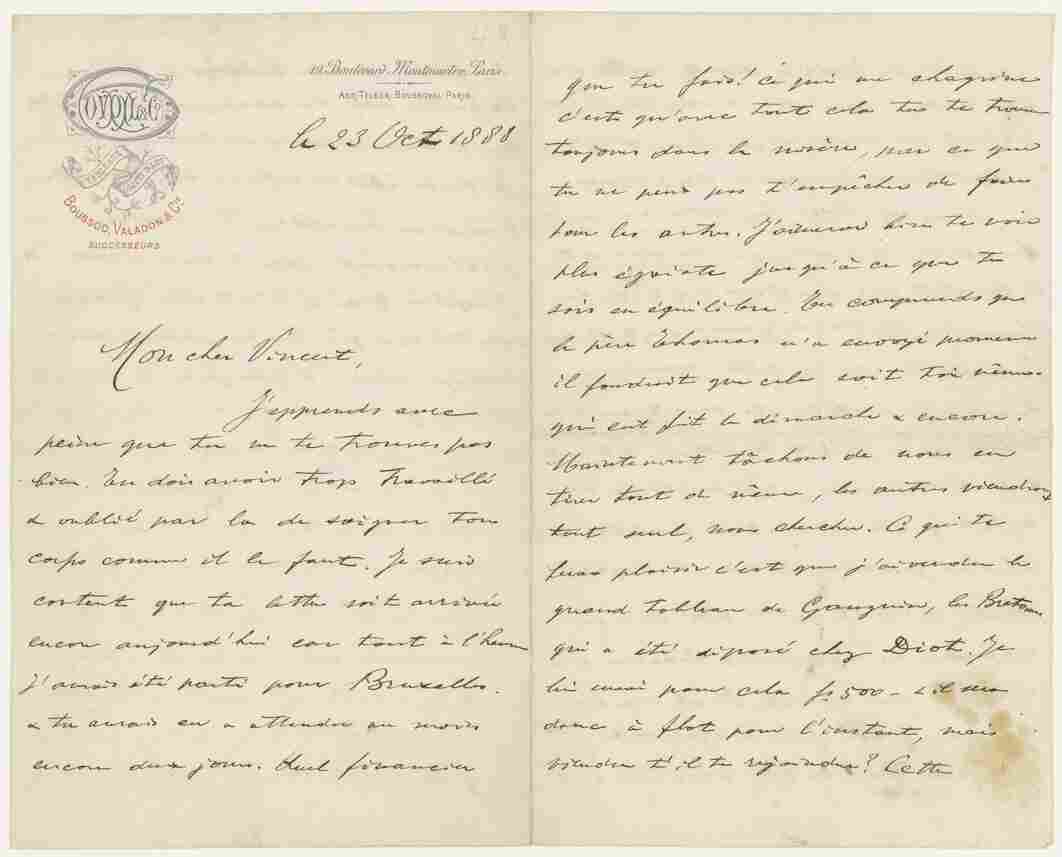 GOUPIL & Cie
BOUSSOD, VALADON & Cie
SUCCESSEURS
19, Boulevard Montmartre, Paris
ADR. TELEGR. BOUSSOVAL-PARIS
le 23 Oct 1888
Mon cher Vincent,
J'apprends avec
peine que tu ne te trouves pas
bien. Tu dois avoir trop travaillé
& oublié par la de soigner ton
corps comme il le faut. Je suis
content que ta lettre soit arrivée
encore aujourd'hui car tout à l'heure
j'aurais été parti pour Bruxelles.
& tu aurais eu a attendre au moins
encore deux jours. Quel financier
que tu fais! Ce qui me chagrine
c'est qu'avec tout cela tu te trouves
toujours dans la misère, par ce que
tu ne peux pas t'empêcher de faire
pour les autres. J'aimerais bien te voir
plus égoiste jusqu'à ce que tu
sois en équilibre. Tu comprends que
le père Thomas m'a envoyé promener
il faudrait que cela soit toi même
qui eut fait la démarche & encore.
Maintenant tâchons de nous en
tirer tout de même, les autres viendront
tout seul, nous chercher. Ce qui te
fera plaisir c'est que j'ai vendu le
grand tableau de Gauguin, les Bretonnes
qui a été déposé chez Diot. Je
lui envoi pour cela fr. 500 - & il sera
donc à flot pour l'instant, mais
viendra t'il te rejoindre? Cette